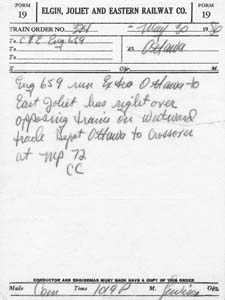 FORM 19
ELGIN, JOLIET AND EASTERN RAILWAY CO.
FORM 19
TRAIN ORDER NO. 324 May 30 1980
To C&E Eng 659 At Ottawa
To
X Opr. M
Eng 659 run Extra Ottawa to
East Joliet has right over
opposing trains on Westward
track Depot Ottawa to Crossover
at MP 72
CC
CONDUCTOR AND ENGINEMAN MUST EACH HAVE A COPY OF THIS ORDER
Made Com Time 1019 P M Opr.